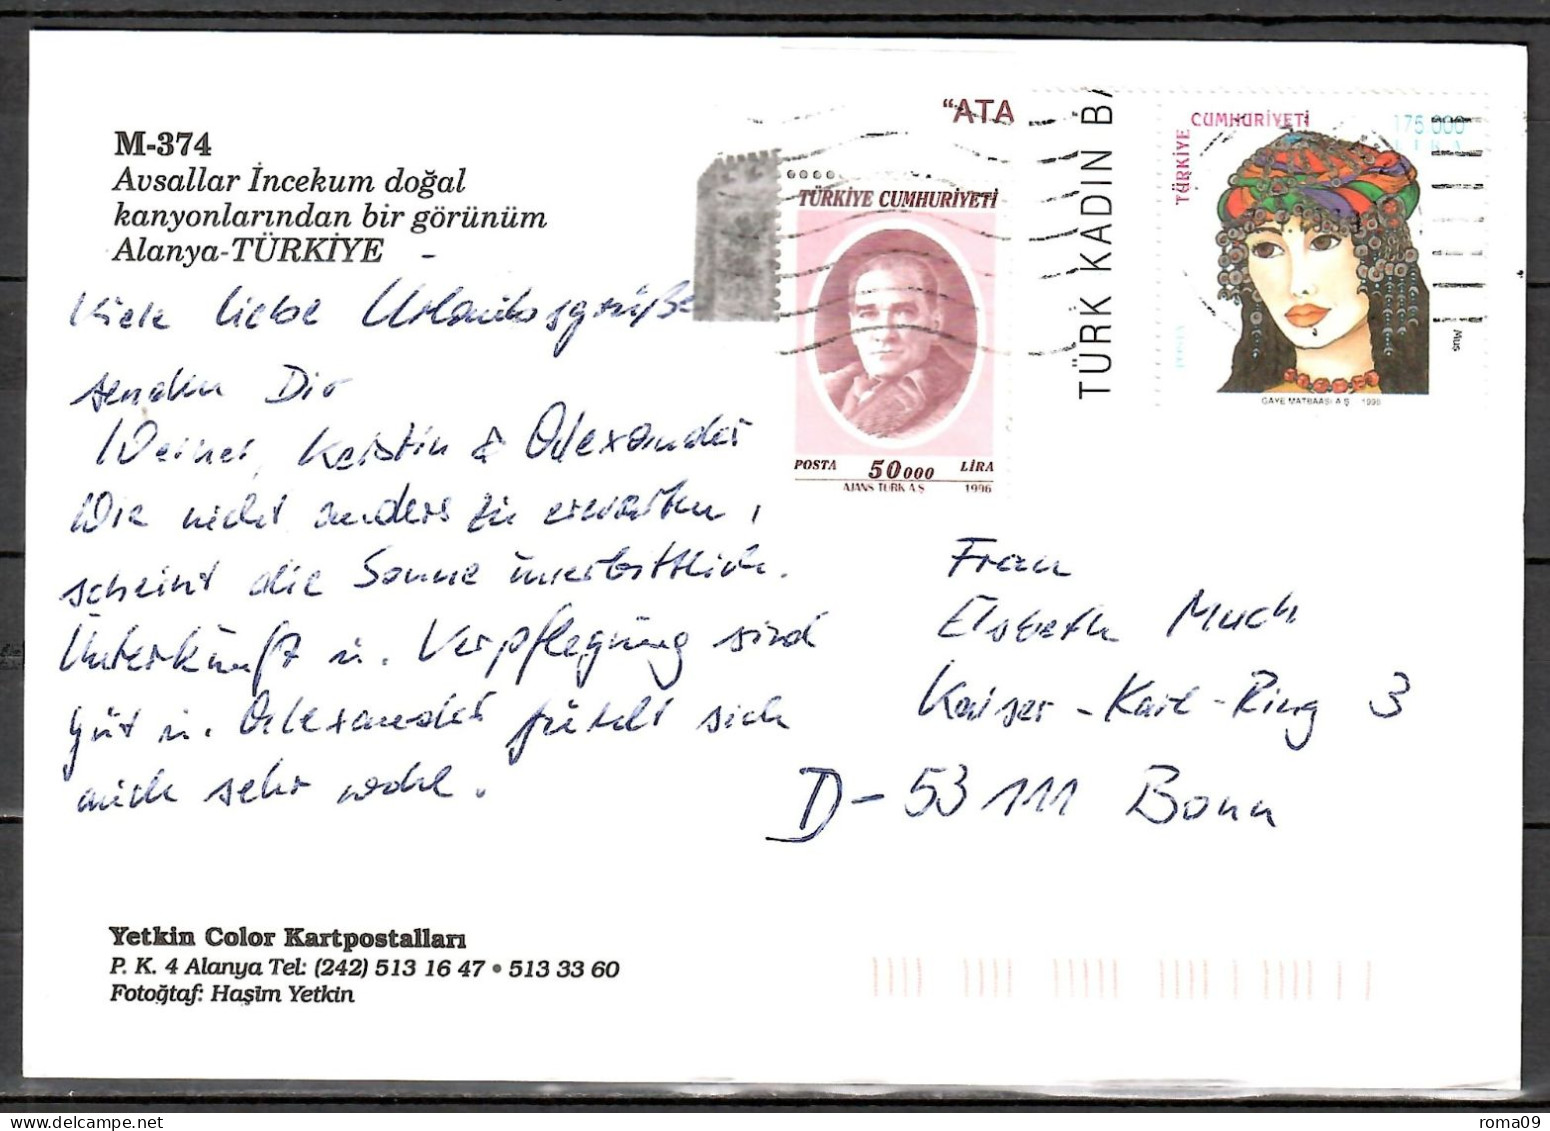 M-374
Avsallar İncekum doğal
kanyonlarından bir görünüm
Alanya-TÜRKİYE
Viele liebe Urlaubsgrüße
senden Dir
Werner, Kerstin & Alexander
Wie nicht anders zu erwarten,
scheint die Sonne unerbittlich.
Unterkunft u. Verpflegung sind
gut u. Alexander fühlt sich
auch sehr wohl.
"ATA
TÜRKİYE CUMHURİYETİ
POSTA 50000 LİRA
AJANS TÜRK A.Ş 1996
TÜRK KADIN BA
TÜRKİYE CUMHURİYETİ
175 000
LİRA
POSTA
Muş
GAYE MATBAASI A.Ş 1998
Frau
Elsbeth Much
Kaiser-Karl-Ring 3
D-53111 Bonn
Yetkin Color Kartpostalları
P. K. 4 Alanya Tel: (242) 513 16 47 • 513 33 60
Fotoğtaf: Haşim Yetkin
roma09